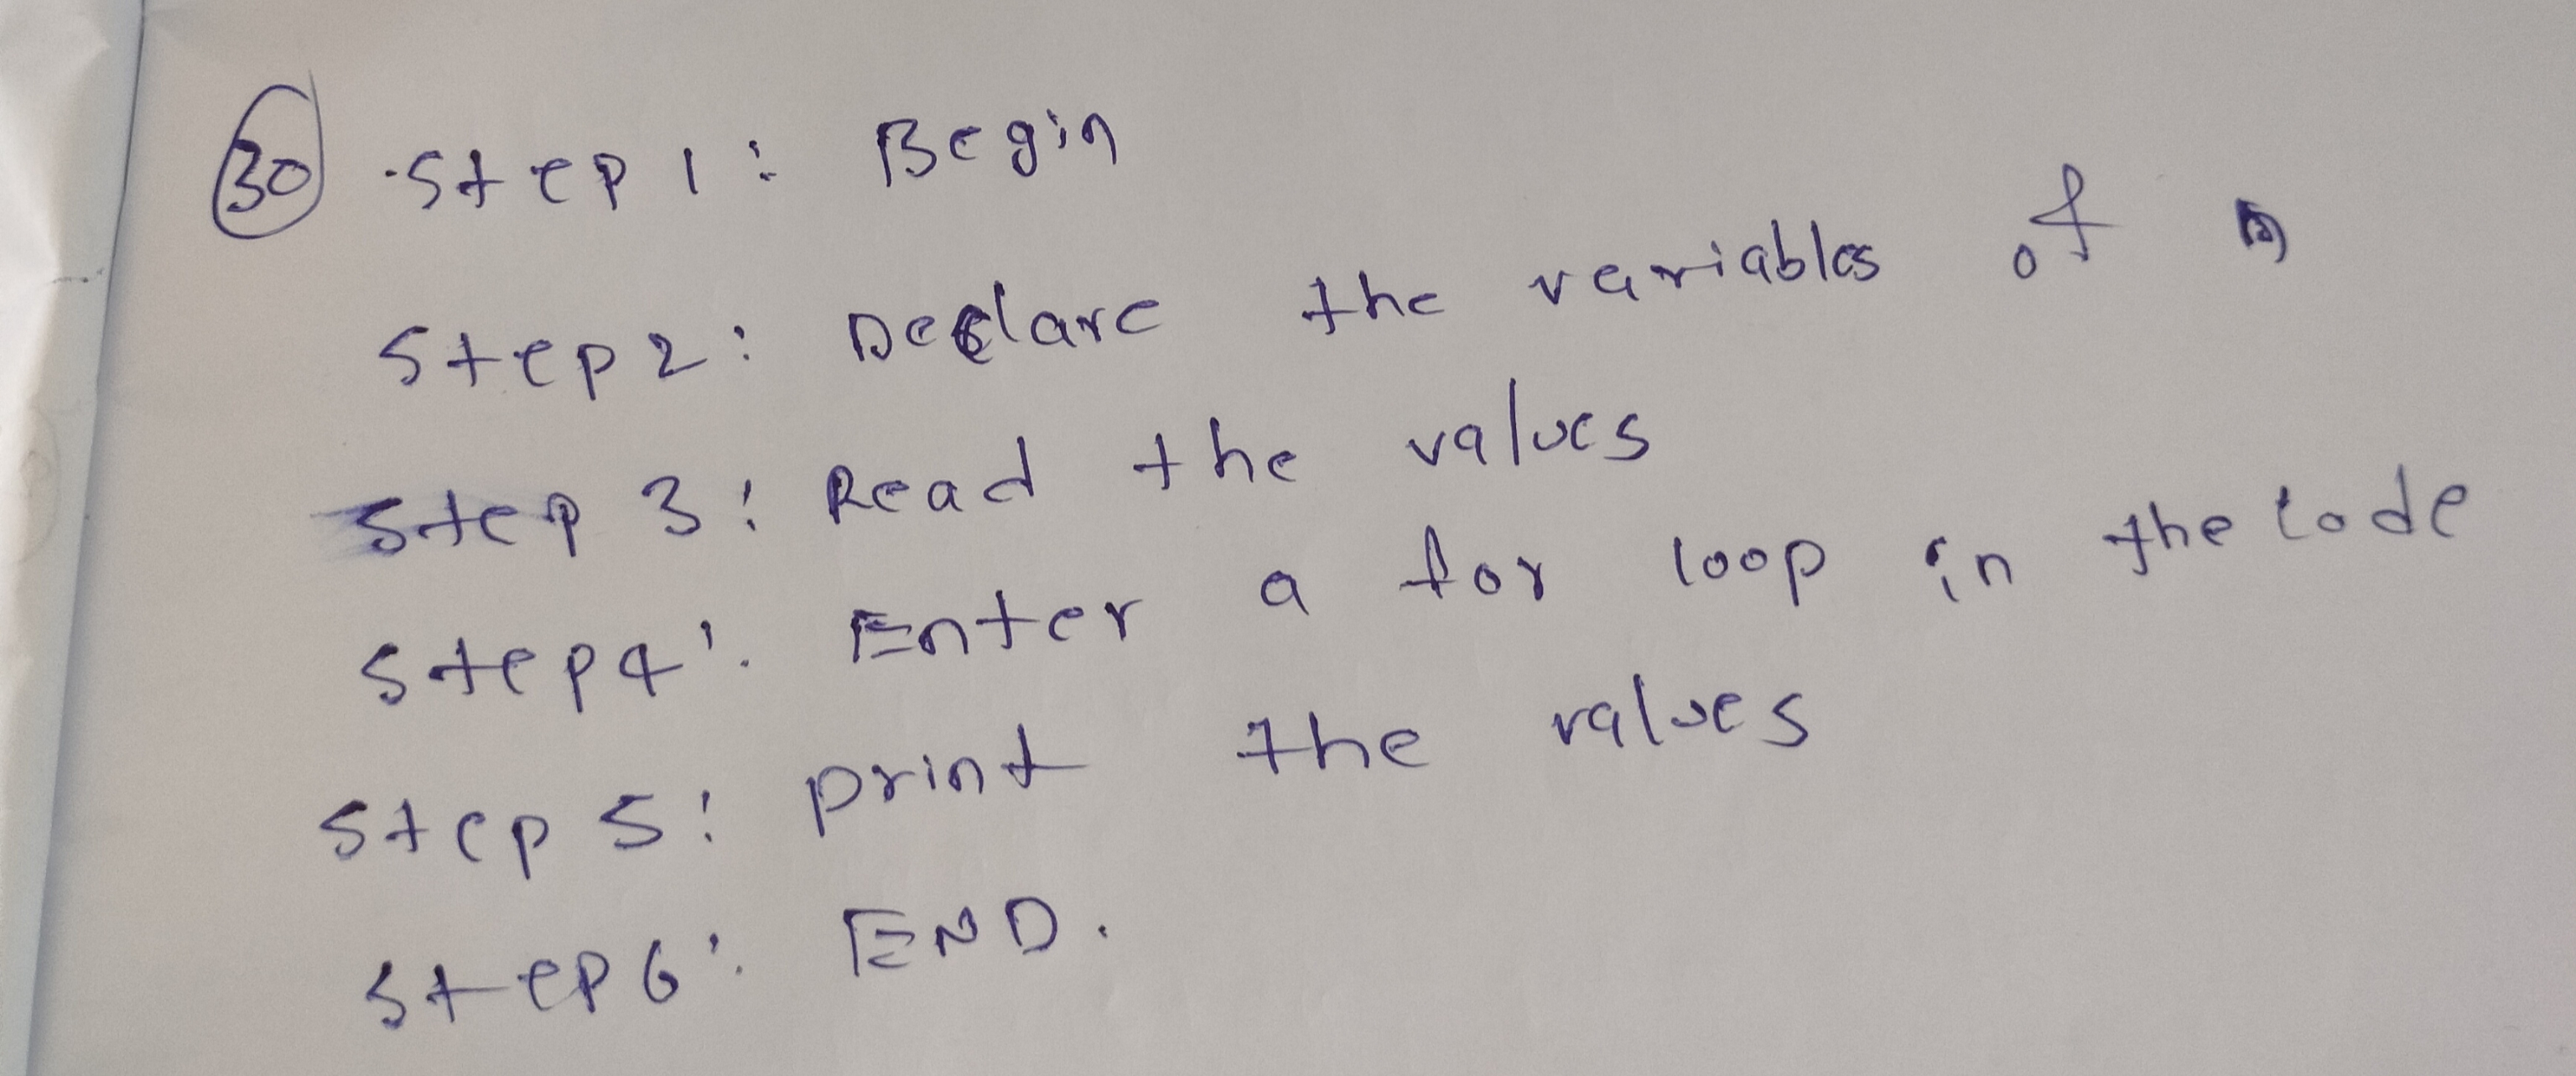 30 Step 1: Begin
Step 2: Declare the variables of n
Step 3: Read the values
Step 4: Enter a for loop in the code
Step 5: print the values
Step 6: END.